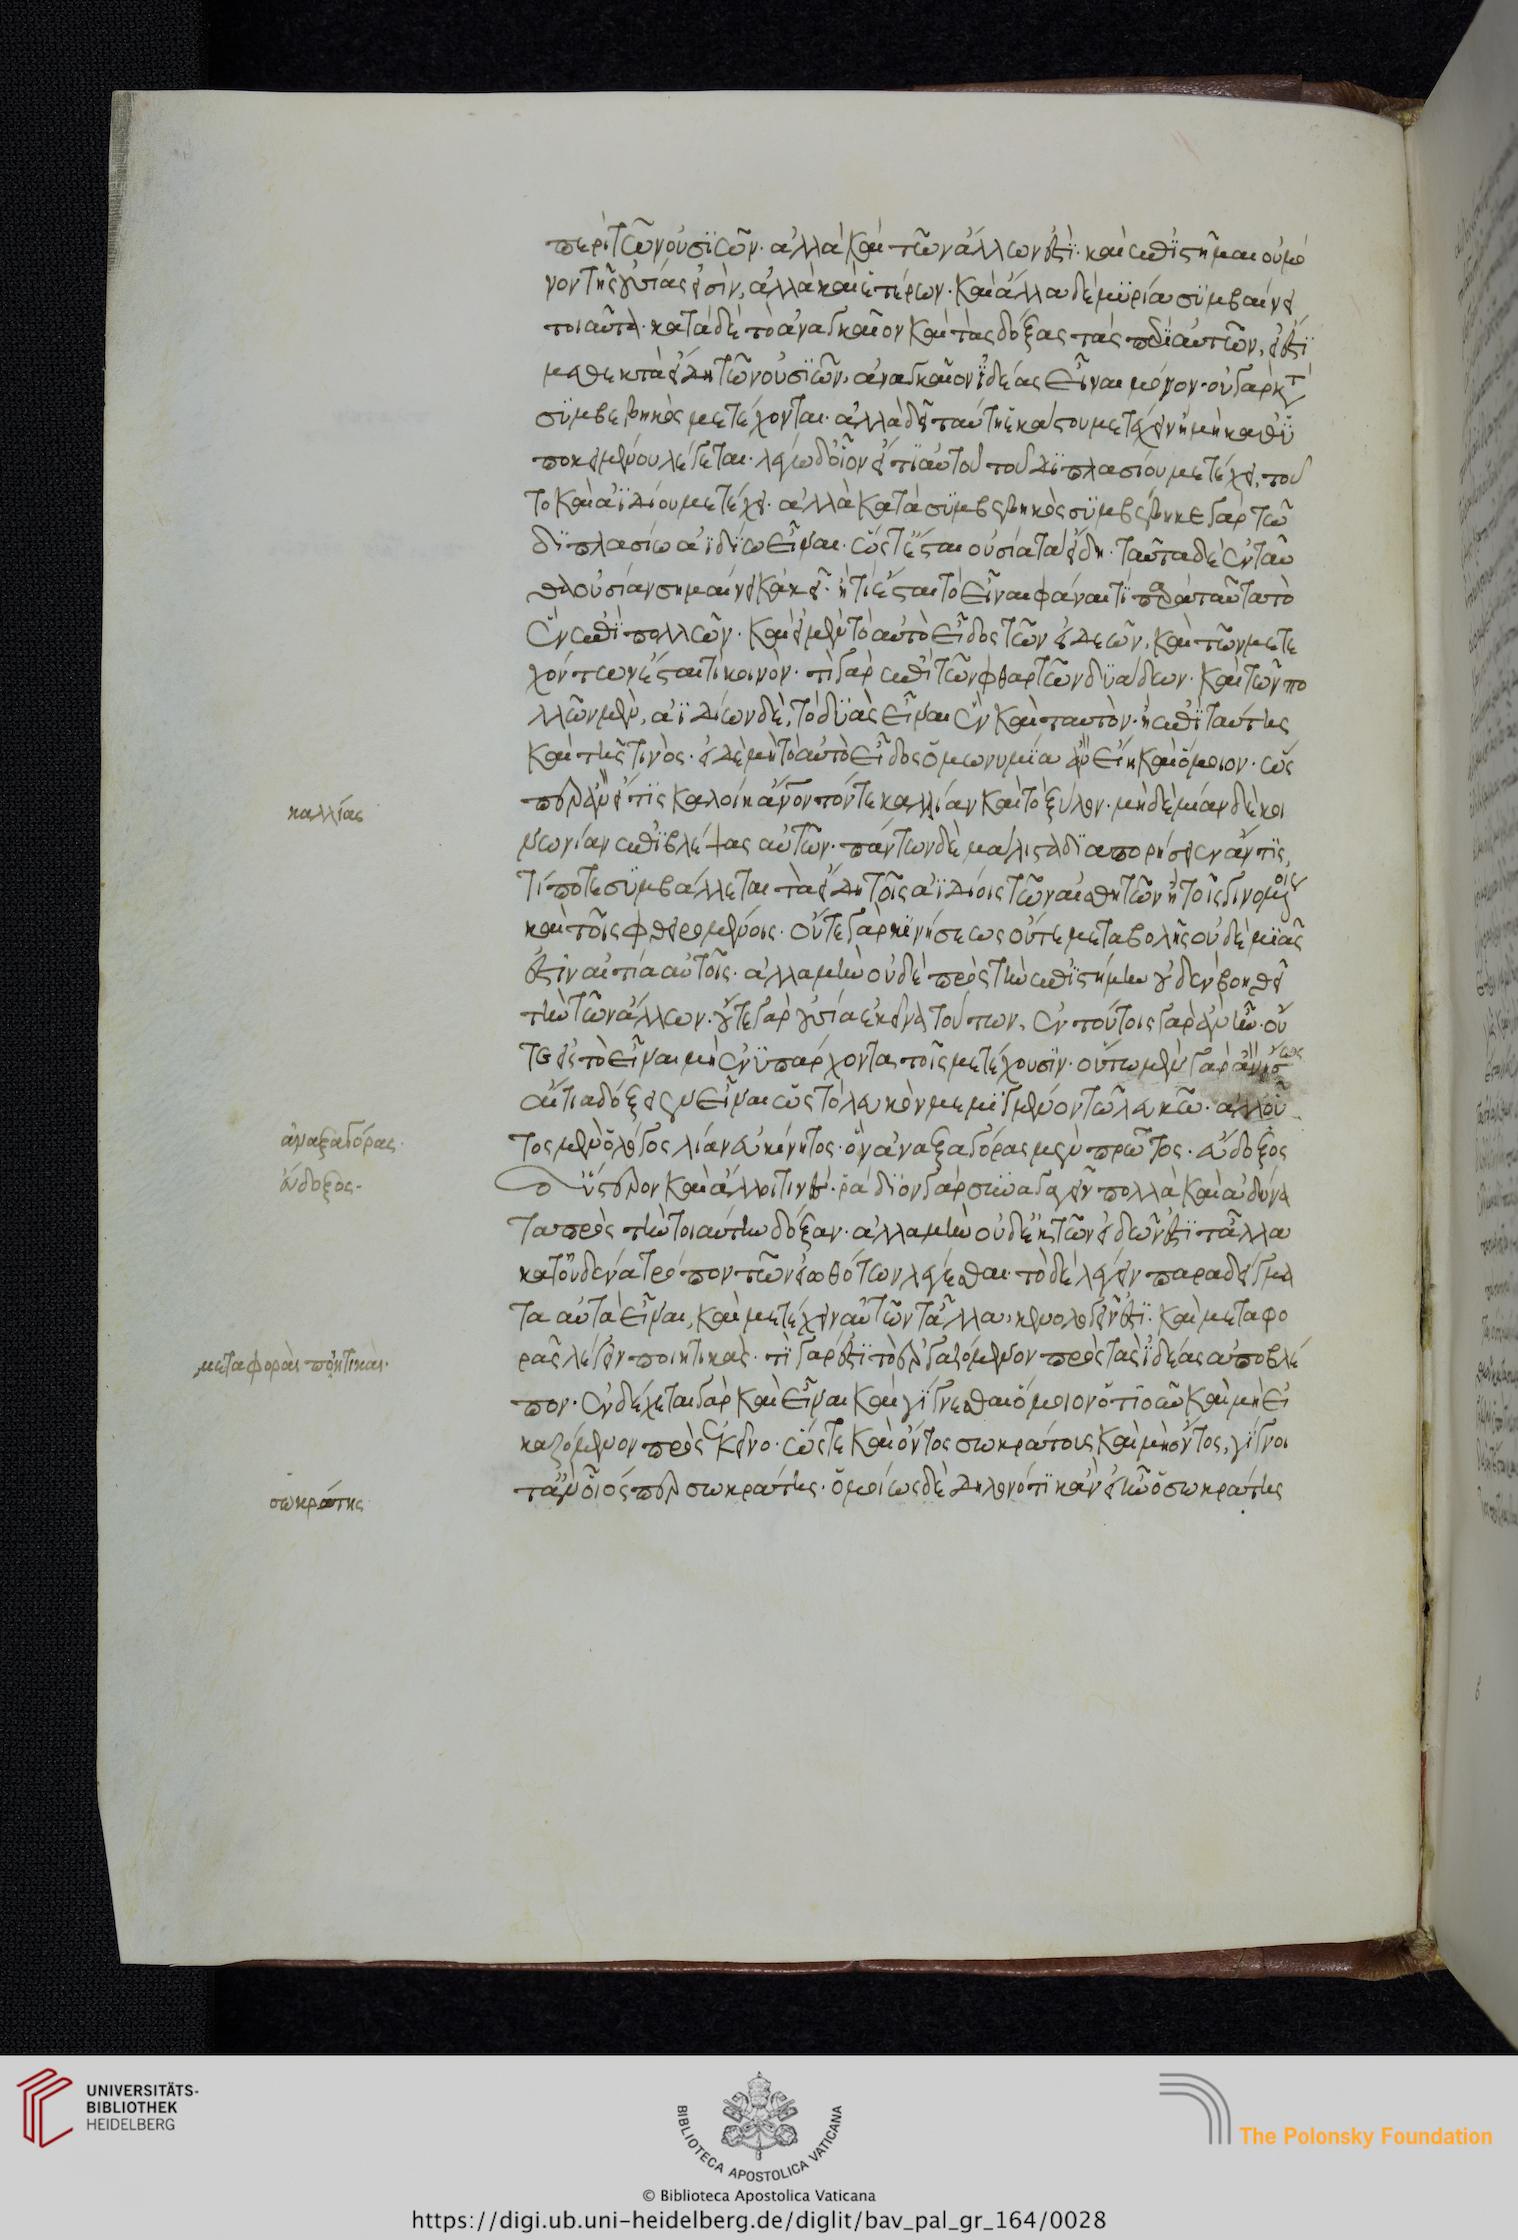 περὶ τῶν οὐσϊῶν· ἀλλὰ καὶ τῶν ἄλλων ἐστὶ· καὶ ἐπϊστῆμαι οὐ μό
νον τῆς οὐσίας εἰσὶν, ἀλλὰ καὶ ἑτέρων· καὶ ἄλλα δὲ μυρία συμβαίνει
τοιαῦτα· κατὰ δὲ τὸ ἀναγκαῖον καὶ τὰς δόξας τὰς περὶ αὐτῶν, εἰ ἐστὶ
μεθεκτὰ εἴδη τῶν οὐσϊῶν, ἀναγκαῖον ἰδέας εἶναι μόνον· οὐ γὰρ κατὰ
συμβεβηκὸς μετέχονται· ἀλλὰ δεῖ ταύτῃ ἑκάστου μετέχειν ᾗ μὴ καθ' ὑ
ποκειμένου λέγεται· λέγω δ' οἷον εἴ τι αὐτοῦ τοῦ διπλασίου μετέχει, τοῦ
το καὶ ἀϊδίου μετέχει· ἀλλὰ κατὰ συμβεβηκὸς συμβέβηκε γὰρ τῷ
διπλασίω ἀϊδίω εἶναι· ὥστ' ἔσται οὐσία τὰ εἴδη· ταῦτα δὲ ἐνταῦ
θα οὐσίαν σημαίνει κἀκεῖ· ἢ τί ἔσται τὸ εἶναι φάναι τὶ παρὰ ταῦτα τὸ
ἓν ἐπὶ πολλῶν· καὶ εἰ μὲν τὸ αὐτὸ εἶδος τῶν εἰδεῶν, καὶ τῶν μετε
χόντων ἔσται τὶ κοινὸν· τὶ γὰρ ἐπὶ τῶν φθαρτῶν δυάδων· καὶ τῶν πο
λλῶν μὲν, ἀϊδίων δὲ, τὸ δυὰς εἶναι ἓν καὶ ταυτὸν· ἢ ἐπὶ ταύτης
καὶ τῆς τινὸς· εἰ δὲ μὴ τὸ αὐτὸ εἶδος ὁμωνυμία ἂν εἴη καὶ ὅμοιον· ὥς
περ ἂν εἴ τις καλοίη ἄνθρωπον τόν τε καλλίαν καὶ τὸ ξύλον· μηδὲμίαν δὲ κοι
νωνίαν ἐπιβλέψας αὐτῶν· πάντων δὲ μάλιστα διαπορήσειεν ἄν τις,
τί ποτε συμβάλλεται τὰ εἴδη τοῖς ἀϊδίοις τῶν αἰσθητῶν ἢ τοῖς γινομένοις
καὶ τοῖς φθειρομένοις· οὔτε γὰρ κινήσεως οὔτε μεταβολῆς οὐδὲ μϊᾶς
ἐστὶν αἰτία αὐτοῖς· ἀλλαμὴν οὐδὲ πρὸς τὴν ἐπιστήμην οὐδὲν βοηθεῖ
τὴν τῶν ἄλλων· οὔτε γὰρ οὐσία ἐκεῖνα τούτων, ἐν τούτοις γὰρ ἂν ἦν· οὔ
τε εἰς τὸ εἶναι μὴ ἐνυπάρχοντα τοῖς μετέχουσϊν· οὕτω μὲν γὰρ ἂν ἴσως
αἴτια δόξειεν εἶναι ὡς τὸ λευκὸν μεμιγμένον τῷ λευκῷ· ἀλλ' οὗ
τος μὲν ὁ λόγος λίαν εὐκίνητος· ὃν ἀναξαγόρας μὲν πρῶτος· εὔδοξος
δ' ὕστερον καὶ ἄλλοι τινὲς· ῥάδιον γὰρ συναγαγεῖν πολλὰ καὶ ἀδύνα
τα πρὸς τὴν τοιαύτην δόξαν· ἀλλαμὴν οὐδ' ἐκ τῶν εἰδῶν ἐστὶ τἆλλα
κατ' οὐδένα τρόπον τῶν εἰωθότων λέγεσθαι· τὸ δὲ λέγειν παραδείγμα
τα αὐτὰ εἶναι, καὶ μετέχειν αὐτῶν τἆλλα, κενολογεῖν ἐστὶ· καὶ μεταφο
ρὰς λέγειν ποιητικὰς· τὶ γάρ ἐστι τὸ ἐργαζόμενον πρὸς τὰς ἰδέας ἀποβλέ
πον· ἐνδέχεται γὰρ καὶ εἶναι καὶ γίγνεσθαι ὅμοιον ὁτϊοῦν καὶ μὴ εἰ
καζόμενον πρὸς ἐκεῖνο· ὥστε καὶ ὄντος σωκράτους καὶ μὴ ὄντος, γίγνοι
τ' ἂν οἷός περ σωκράτης· ὁμοίως δὲ δηλονότι κἂν εἰ ἦν ὁ σωκράτης
καλλίας
ἀναξαγόρας·
εὔδοξος·
μεταφορὰς ποιητικάς·
σωκράτης
UNIVERSITÄTS-
BIBLIOTHEK
HEIDELBERG
BIBLIOTECA APOSTOLICA VATICANA
© Biblioteca Apostolica Vaticana
The Polonsky Foundation
https://digi.ub.uni-heidelberg.de/diglit/bav_pal_gr_164/0028